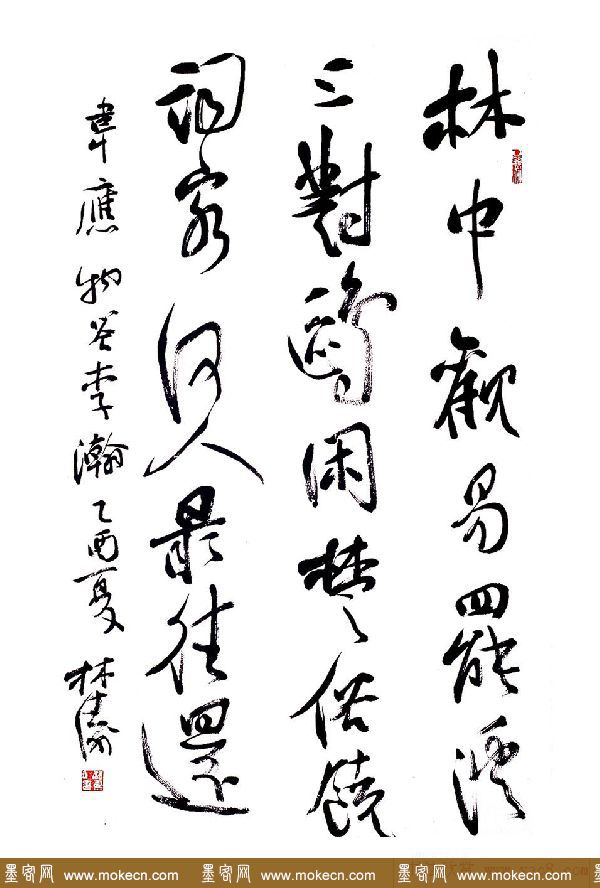 林中觀易罷溪
上對鷗閑楚俗饒
詞客何人最往還
韋應物答李瀚乙酉夏 林
墨客网 www.mokecn.com 墨客网 www.mokecn.com 墨客网 www.mokecn.com